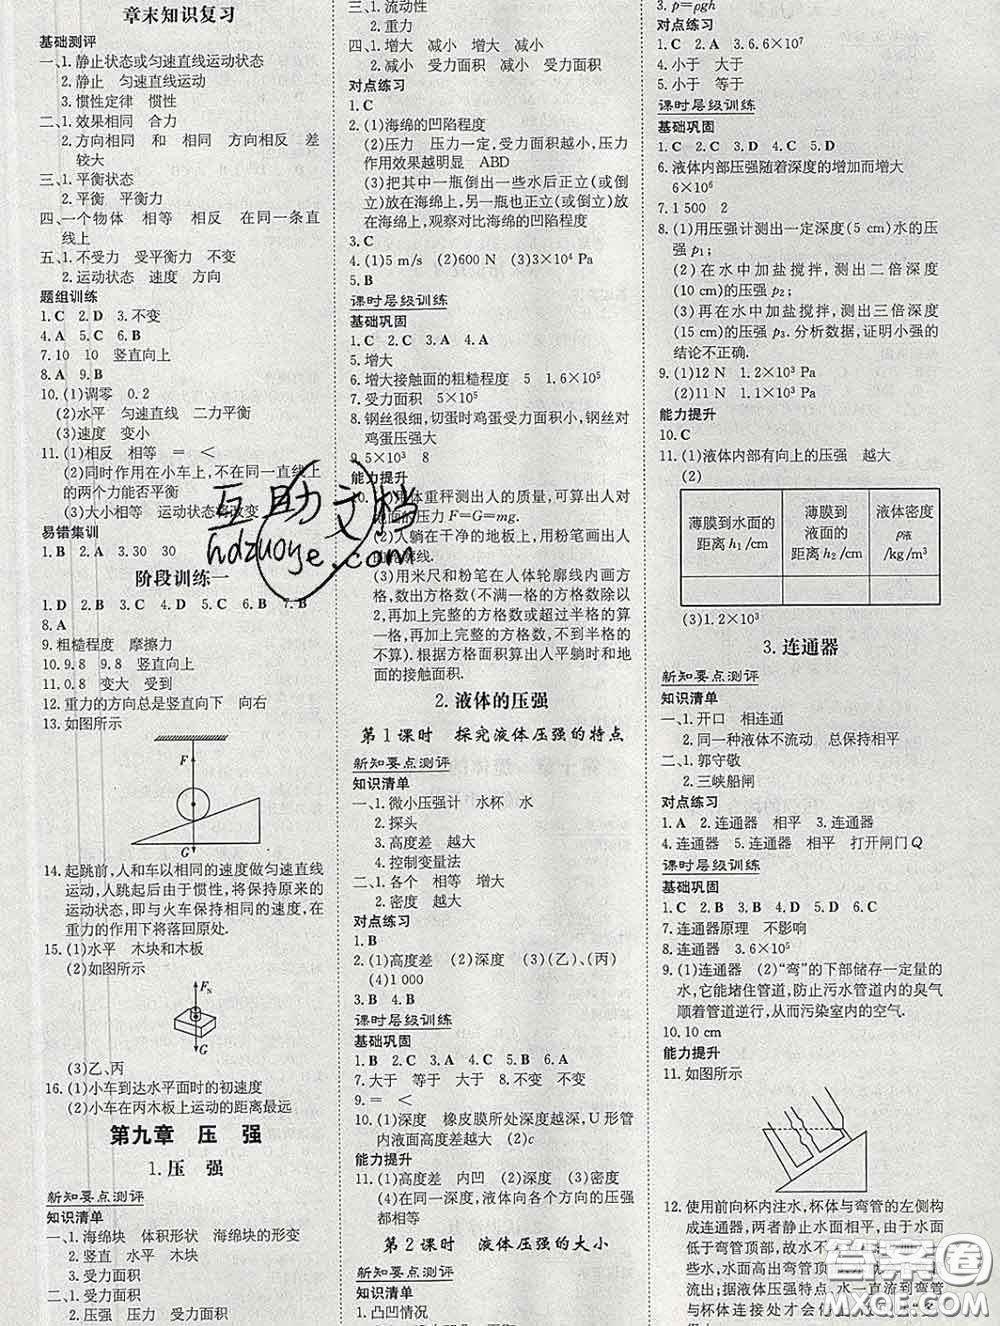 章末知识复习
基础测评
一、1.静止状态或匀速直线运动状态
2.静止　匀速直线运动
3.惯性定律　惯性
二、1.效果相同　合力
2.方向相同　和　相同　方向相反　差
较大
三、1.平衡状态
2.平衡　平衡力
四、一个物体　相等　相反　在同一条直
线上
五、1.不受力　受平衡力　不变
2.运动状态　速度　方向
题组训练
1.C　2.D　3.不变
4.A　5.C　6.B
7.10　10　竖直向上
8.A　9.B
10.(1)调零　0.2
(2)水平　匀速直线　二力平衡
(3)速度　变小
11.(1)相反　相等　=　<
(2)同时作用在小车上,不在同一直线上
的两个力能否平衡
(3)大小相等　运动状态将改变
易错集训
1.B　2.B　3.30　30
阶段训练一
1.D　2.B　3.C　4.D　5.B　6.B　7.B
8.A
9.粗糙程度　摩擦力
10.9.8　9.8　竖直向上
11.0.8　变大　受到
12.重力的方向总是竖直向下　向右
13.如图所示
F
G
14.起跳前,人和车以相同的速度做匀速直线
运动,人跳起后由于惯性,将保持原来的
运动状态,即与火车保持相同的速度,在
重力的作用下将落回原处.
15.(1)水平　木块和木板
(2)如图所示
FN
G
(3)乙、丙
16.(1)小车到达水平面时的初速度
(2)小车在丙木板上运动的距离最远
第九章　压　强
1.压　强
新知要点测评
知识清单
一、1.海绵块　体积形状　海绵块的形变
2.竖直　水平　木块
3.受力面积
二、1.受力面积
2.压强　压力　受力面积
三、1.流动性
2.重力
四、1.增大　减小　减小　增大
2.减小　受力面积　减小　受力面积
对点练习
1.C
2.(1)海绵的凹陷程度
(2)压力　压力一定,受力面积越小,压力
作用效果越明显　ABD
(3)把其中一瓶倒出一些水后正立(或倒
立)放在海绵上,另一瓶也正立(或倒立)
放在海绵上,观察对比海绵的凹陷程度
3.C
4.(1)5 m/s　(2)600 N　(3)3×10⁵ Pa
5.B
课时层级训练
基础巩固
1.C　2.C　3.A　4.B
5.增大
6.增大接触面的粗糙程度　5　1.6×10⁵
7.受力面积　5×10⁵
8.钢丝很细,切蛋时鸡蛋受力面积小,钢丝对
鸡蛋压强大
9.5×10³　8
能力提升
10.(1)用体重秤测出人的质量,可算出人对
地面的压力F=G=mg.
(2)人躺在干净的地板上,用粉笔画出人
的轮廓线.
(3)用米尺和粉笔在人体轮廓线内画方
格,数出方格数(不满一格的方格数除以
2,再加上完整的方格数或超过半格的算
一格,再加上完整的方格数,不到半格的不
算).根据方格面积算出人平躺时和地
面的接触面积.
2.液体的压强
第1课时　探究液体压强的特点
新知要点测评
知识清单
一、1.微小压强计　水杯　水
2.探头
3.高度差　越大
4.控制变量法
二、1.各个　相等　增大
2.密度　越大
对点练习
1.B
2.(1)高度差　(2)深度　(3)(乙)、(丙)
(4)1 000
课时层级训练
基础巩固
1.B　2.C　3.A　4.C　5.B　6.A
7.大于　等于　大于　8.不变　不变
9.=　<
10.(1)深度　橡皮膜所处深度越深,U形管
内液面高度差越大　(2)c
能力提升
11.(1)高度差　内凹　(2)深度　(3)密度
(4)在同一深度,液体向各个方向的压强
都相等
第2课时　液体压强的大小
新知要点测评
知识清单
1.凸凹情况
3.p=ρgh
对点练习
1.C　2.A　3.6.6×10⁷
4.小于　大于
5.小于　等于
课时层级训练
基础巩固
1.C　2.C　3.B　4.D　5.C
6.液体内部压强随着深度的增加而增大
6×10⁶
7.1 500　2
8.(1)用压强计测出一定深度(5 cm)水的压
强p₁;
(2)在水中加盐搅拌,测出二倍深度
(10 cm)的压强p₂;
(3)再在水中加盐搅拌,测出三倍深度
(15 cm)的压强p₃.分析数据,证明小强的
结论不正确.
9.(1)12 N　1.2×10³ Pa
(2)11 N　1.2×10³ Pa
能力提升
10.C
11.(1)液体内部有向上的压强　越大
(2)
薄膜到水面的距离h₁/cm　薄膜到液面的距离h₂/cm　液体密度ρ液/kg/m³
(3)1.2×10³
3.连通器
新知要点测评
知识清单
一、1.开口　相连通
2.同一种液体不流动　总保持相平
二、1.郭守敬
2.三峡船闸
对点练习
1.A　2.连通器　相平　3.连通器
4.连通器　5.连通器　相平　打开闸门Q
课时层级训练
基础巩固
1.C　2.B　3.D　4.B　5.C　6.D
7.连通器原理　不影响
8.连通器　3.6×10⁵
9.(1)连通器　(2)“弯”的下部储存一定量的
水,它能堵住管道,防止污水管道内的臭气
顺着管道逆行,从而污染室内的空气.
10.10 cm
能力提升
11.如图所示
12.使用前向杯内注水,杯体与弯管的左侧构
成连通器,两者静止水面相平,杯中水面
低于弯管顶部,故水不
些水,水面高过弯管顶部
出;据液体压强特点,水一直流到弯管
与杯体连接处才会停
互助文档
hdzuoye.com
答案圈
MXQE.COM